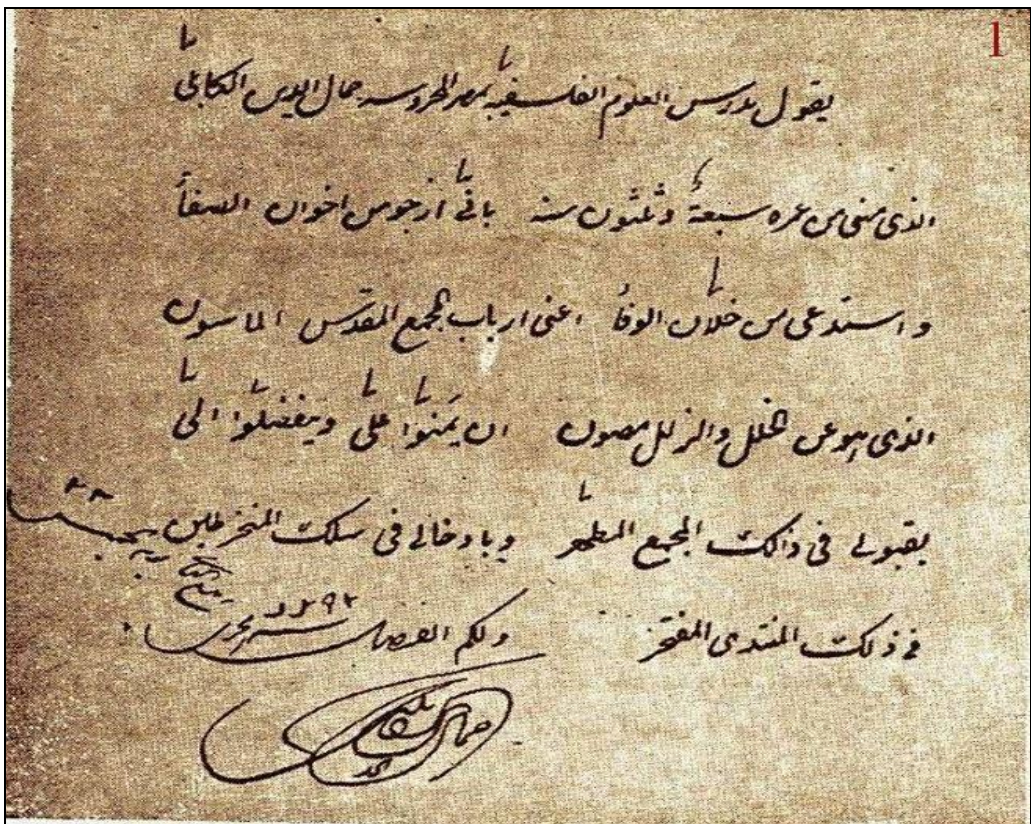 1
يقول مدرس العلوم الفلسفية بمصر المحروسه جمال الدين الكابلى
الذى مضى من عمره سبعة وثلثون سنه بانى ارجو من اخوان الصفأ
واستدعى من خلان الوفأ اعنى ارباب المجمع المقدس الماسون
الذى هو عن الخلل والزلل مصون ان يمنوا على ويتفضلوا الى
بقبولى فى ذالك المجمع المطهر وبادخالى فى سلك المنخرطين
فى ذلك المنتدى المفتخر ولكم الفضل
جمال الدين